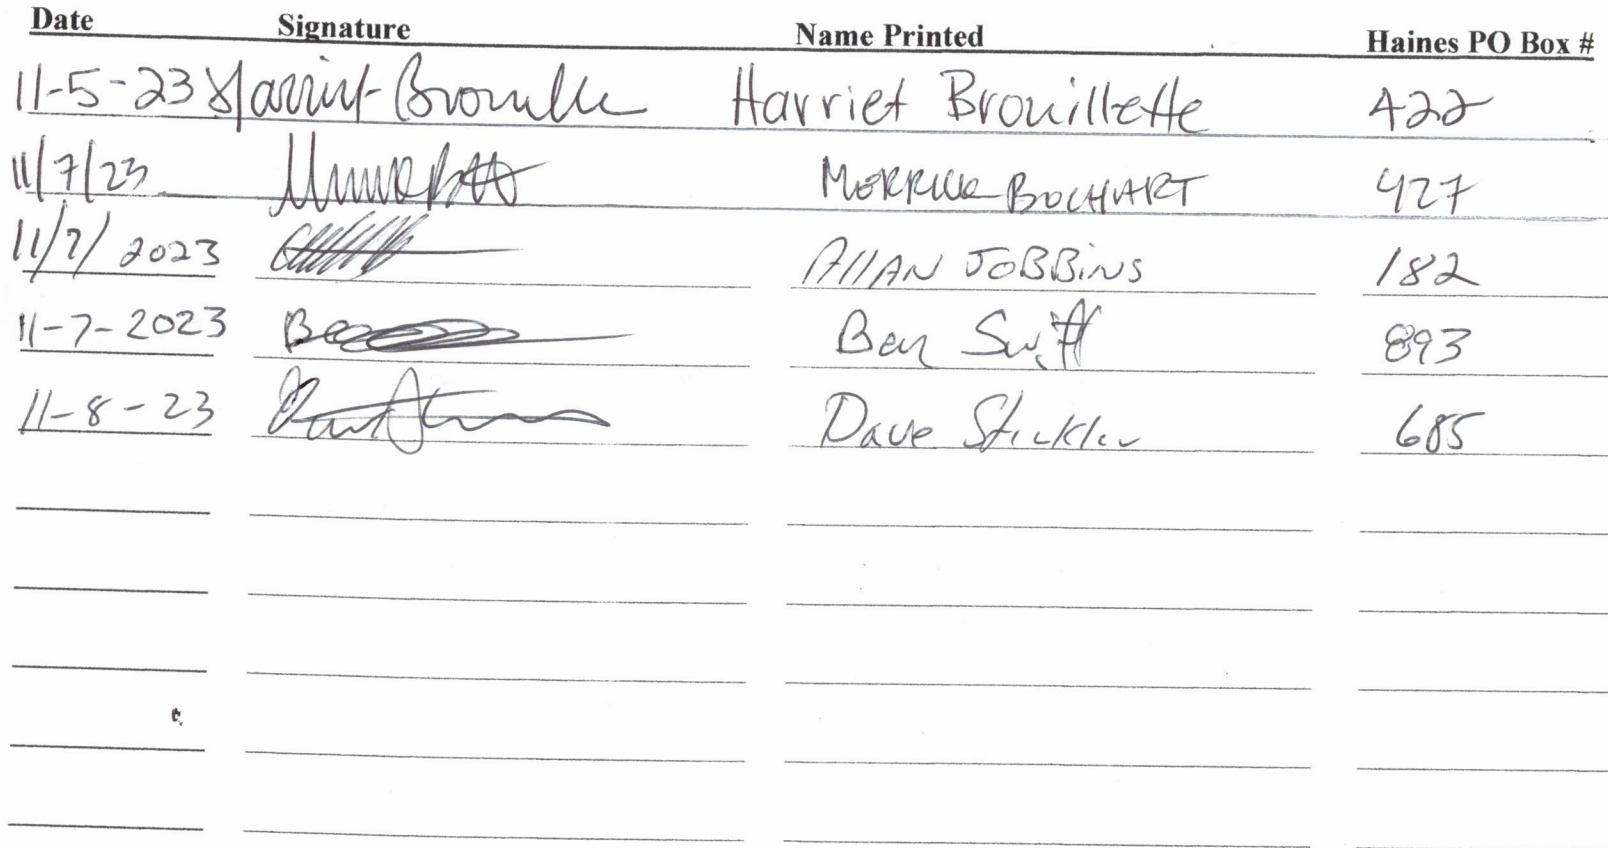 Date Signature Name Printed Haines PO Box #
11-5-23 Harriet Brouillette Harriet Brouillette 422
11/7/23 MERRICK BOCHART 427
11/7/2023 AllAN JOBBiNS 182
11-7-2023 Ben Swift 893
11-8-23 Dave Stickler 685